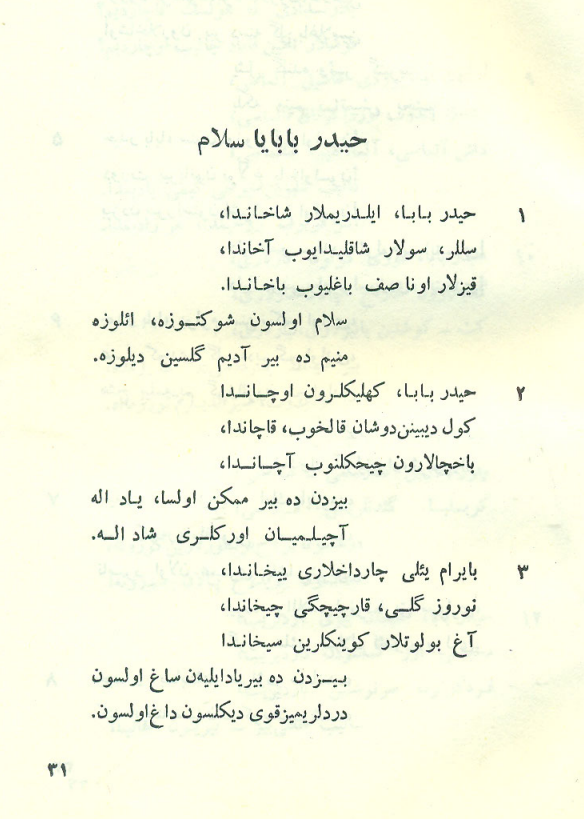 حیدر بابایا سلام
۱ حیدر بابا، ایلدریملار شاخاندا،
سللر، سولار شاقلیدایوب آخاندا،
قیزلار اونا صف باغلیوب باخاندا.
سلام اولسون شوکتوزه، ائلوزه
منیم ده بیر آدیم گلسین دیلوزه.
۲ حیدر بابا، کهلیکلرون اوچاندا
کول دیبینن دوشان قالخوب، قاچاندا،
باخچالارون چیچکلنوب آچاندا،
بیزدن ده بیر ممکن اولسا، یاد اله
آچیلمیان اورکلری شاد اله.
۳ بایرام یئلی چارداخلاری ییخاندا،
نوروز گلی، قارچیچگی چیخاندا،
آغ بولوتلار کوینکلرین سیخاندا
بیزدن ده بیر یادایلیهن ساغ اولسون
دردلریمیز قوی دیکلسون داغ اولسون.
۳۱